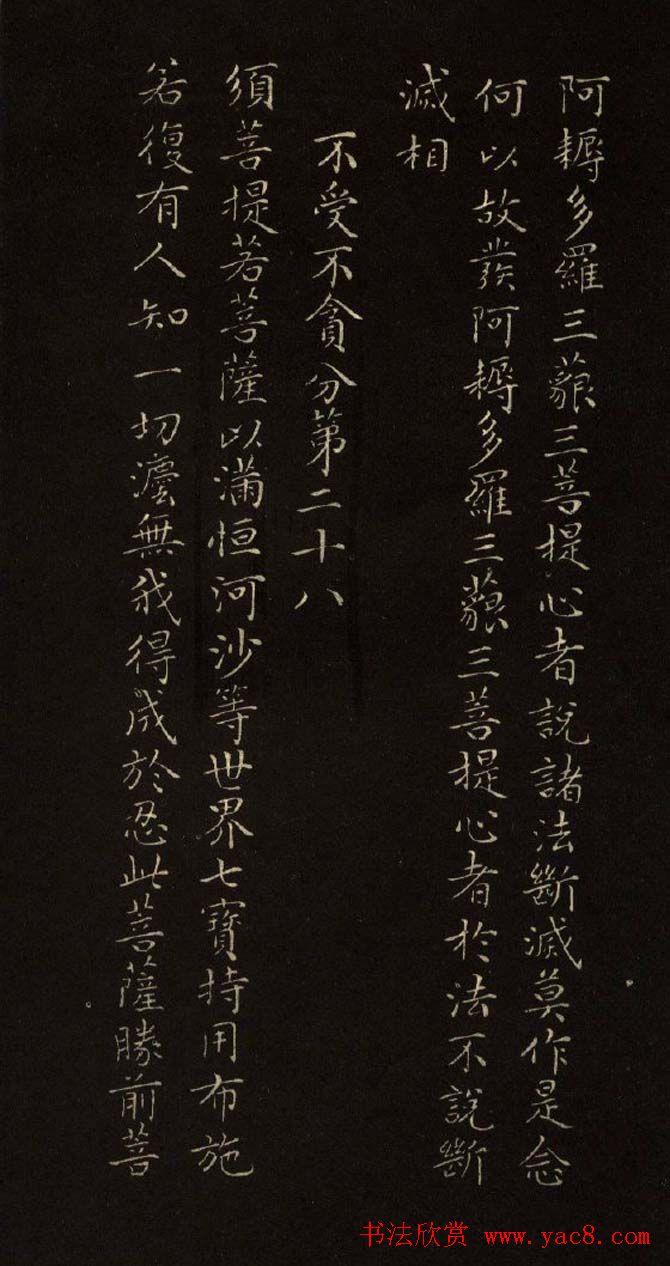 阿耨多羅三藐三菩提心者說諸法斷滅莫作是念
何以故發阿耨多羅三藐三菩提心者於法不說斷
滅相
不受不貪分第二十八
須菩提若菩薩以滿恒河沙等世界七寶持用布施
若復有人知一切灋無我得成於忍此菩薩勝前菩
书法欣赏 www.yac8.com